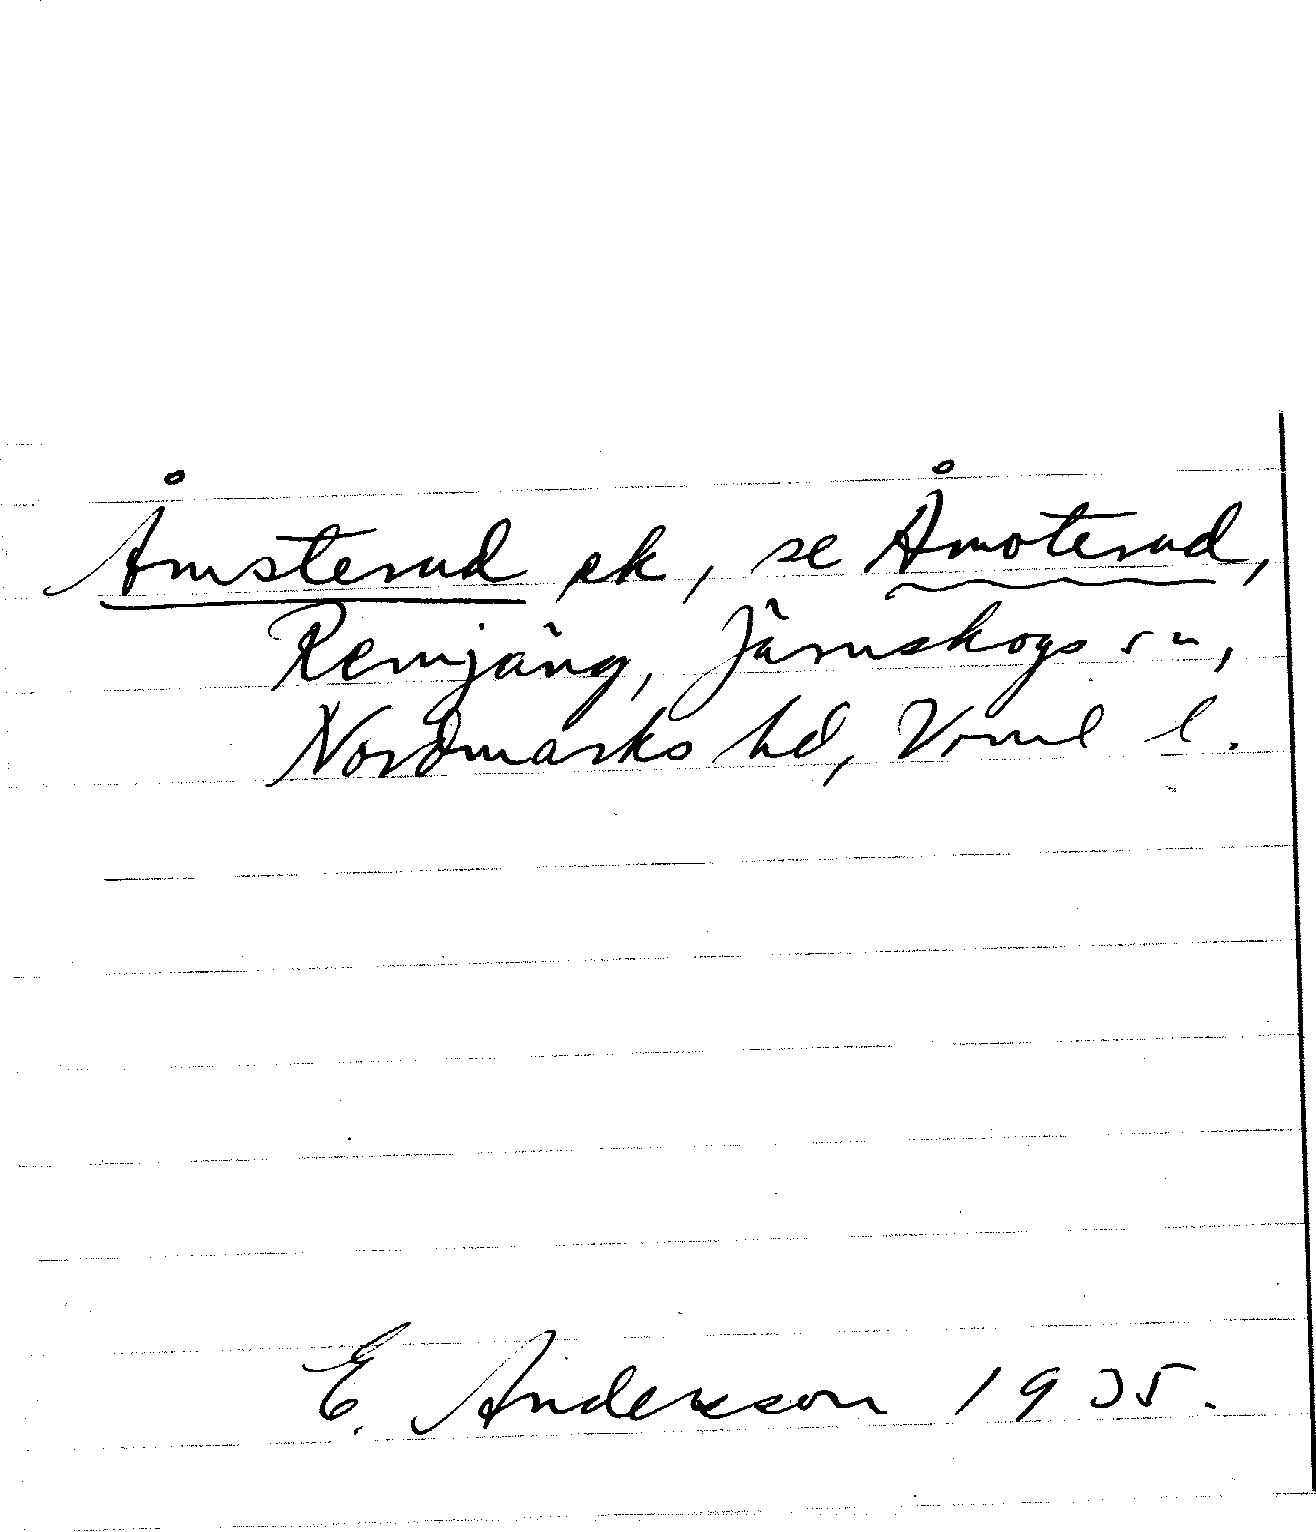 Åmsterud ek, se Åmoterud,
Remjäng, Järnskogs sn,
Nordmarks hd, Vrml l.
E. Andersson 1935.